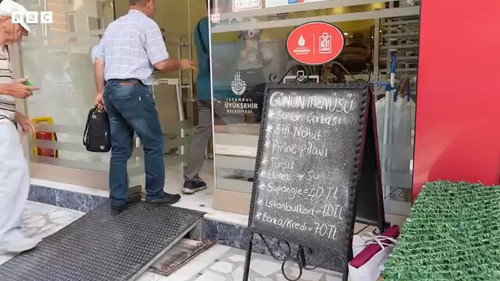 BBC
İSTANBUL
BÜYÜKŞEHİR
BELEDİYESİ
GÜNÜN MENÜSÜ
* Süzme Çorbası
* Etli Nohut
* Pirinç Pilavı
* Turşu
* Ekmek * Su
* Supangle=40TL
* İstanbulkart=40TL
* Banka/Kredi=70TL